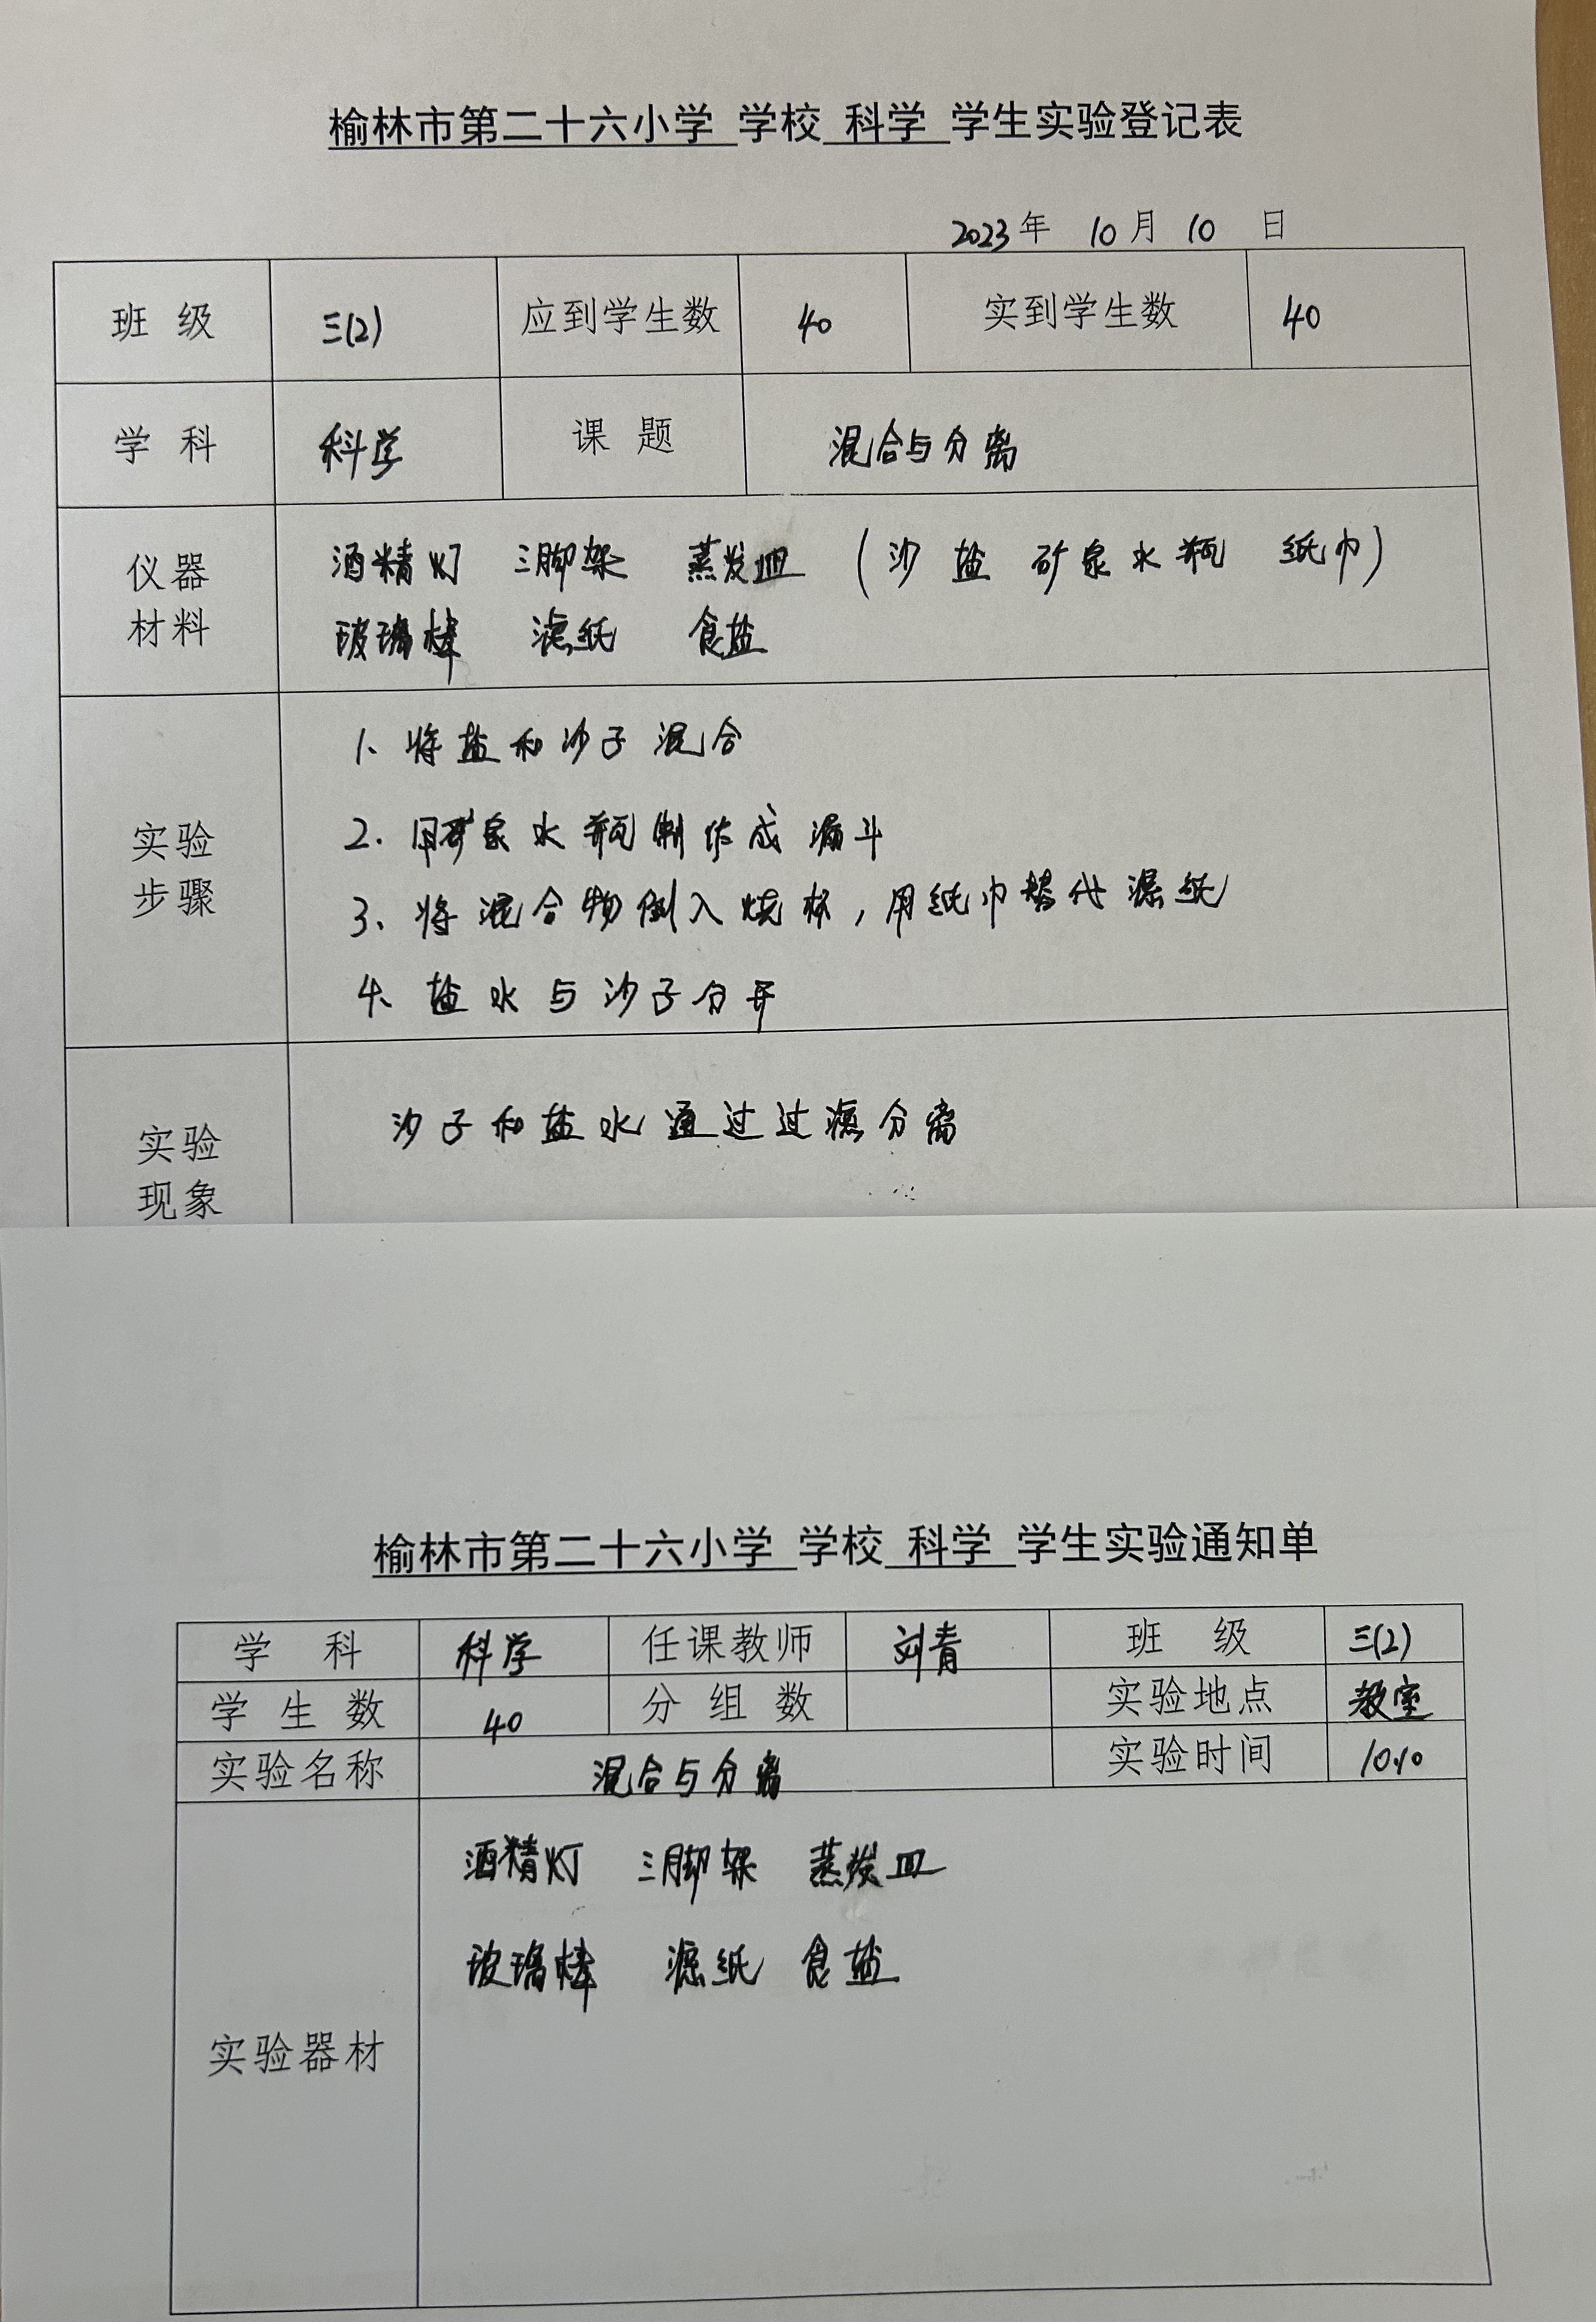 榆林市第二十六小学 学校 科学 学生实验登记表
2023年 10月10 日
班 级 三(2) 应到学生数 40 实到学生数 40
学 科 科学 课 题 混合与分离
仪器
材料
酒精灯 三脚架 蒸发皿 (沙 盐 矿泉水瓶 纸巾)
玻璃棒 滤纸 食盐
实验
步骤
1、将盐和沙子混合
2.用矿泉水瓶制作成漏斗
3、将混合物倒入烧杯,用纸巾替代滤纸
4、盐水与沙子分开
实验
现象
沙子和盐水通过过滤分离
榆林市第二十六小学 学校 科学 学生实验通知单
学 科 科学 任课教师 刘青 班 级 三(2)
学 生 数 40 分 组 数 实验地点 教室
实验名称 混合与分离 实验时间 10.10
实验器材
酒精灯 三脚架 蒸发皿
玻璃棒 滤纸 食盐